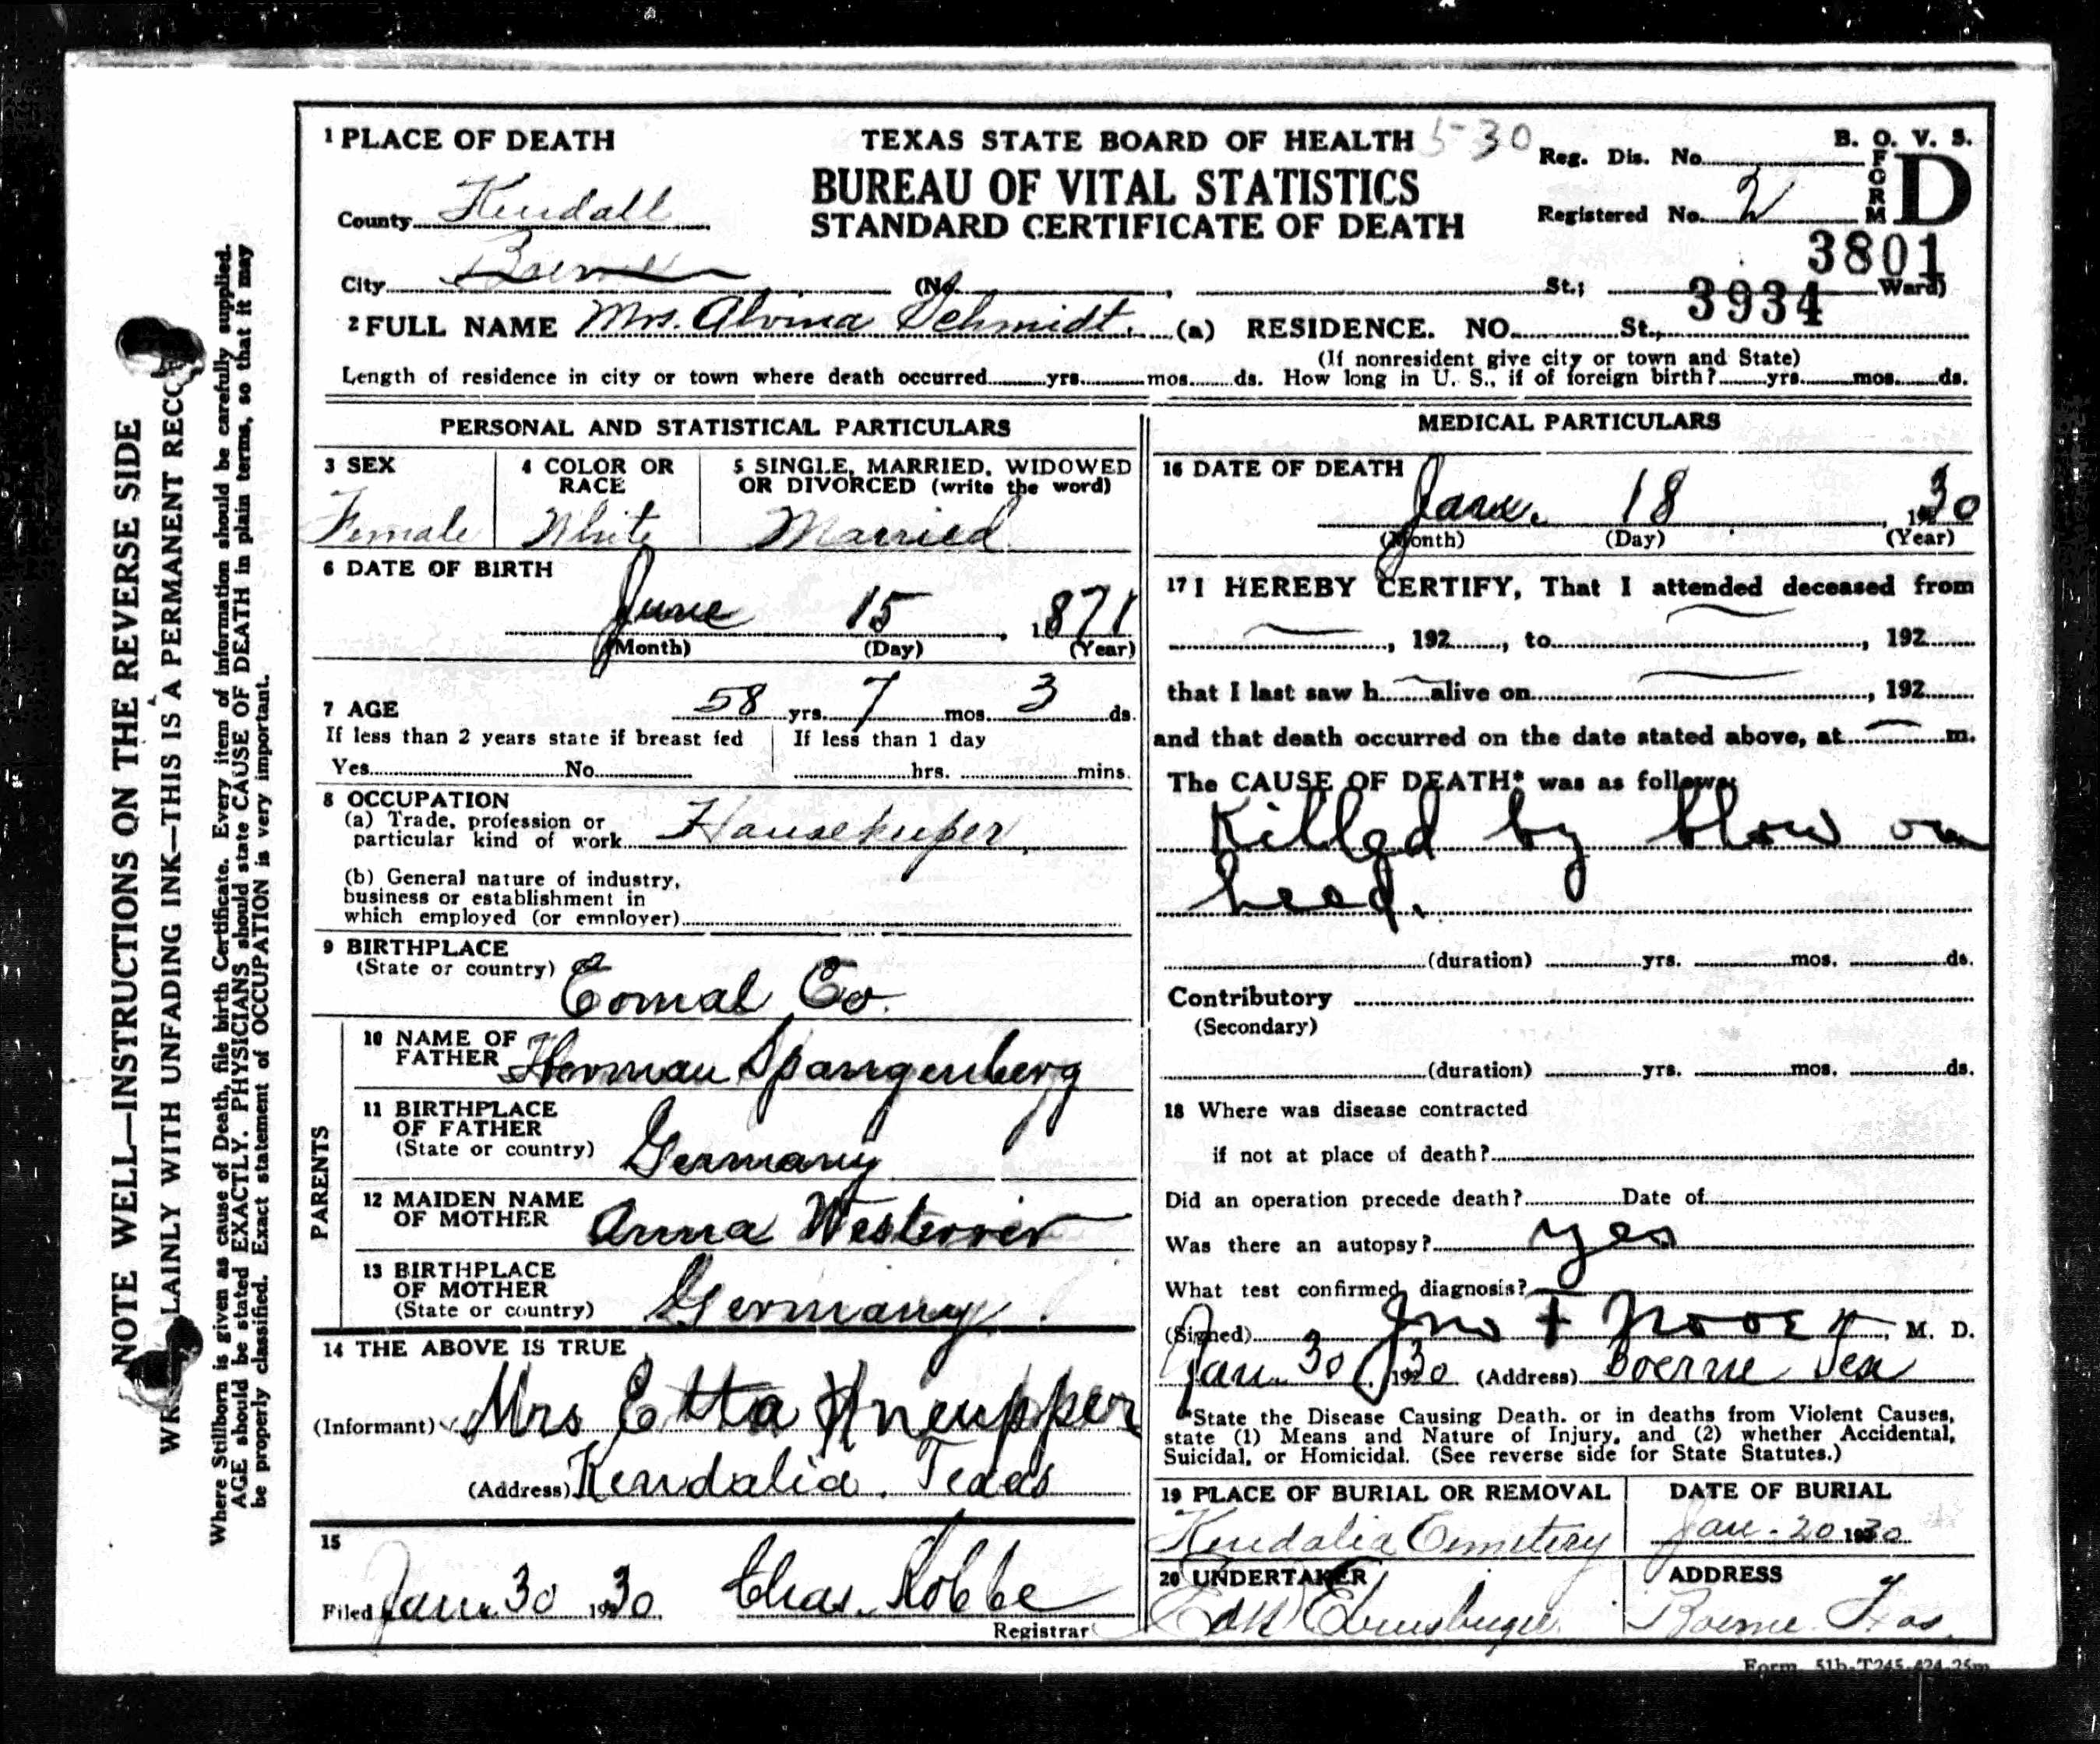 1 PLACE OF DEATH
TEXAS STATE BOARD OF HEALTH 5-30
Reg. Dis. No.
B. O. V. S.
FORM D
County Kendall
BUREAU OF VITAL STATISTICS
STANDARD CERTIFICATE OF DEATH
Registered No. 2
3801
City Boerne (No. , St.; Ward)
3934
2 FULL NAME Mrs. Alvina Schmidt. (a) RESIDENCE. NO. St.,
(If nonresident give city or town and State)
Length of residence in city or town where death occurred yrs. mos. ds. How long in U. S., if of foreign birth? yrs. mos. ds.
PERSONAL AND STATISTICAL PARTICULARS
3 SEX
Female
4 COLOR OR RACE
White
5 SINGLE, MARRIED, WIDOWED
OR DIVORCED (write the word)
Married
6 DATE OF BIRTH
June 15, 1871
(Month) (Day) (Year)
7 AGE 58 yrs. 7 mos. 3 ds.
If less than 2 years state if breast fed
Yes No
If less than 1 day
hrs. mins.
8 OCCUPATION
(a) Trade, profession or
particular kind of work Housekeeper
(b) General nature of industry,
business or establishment in
which employed (or employer)
9 BIRTHPLACE
(State or country) Comal Co.
PARENTS
10 NAME OF
FATHER Herman Spangenberg
11 BIRTHPLACE
OF FATHER
(State or country) Germany
12 MAIDEN NAME
OF MOTHER Anna
13 BIRTHPLACE
OF MOTHER
(State or country) Germany.
14 THE ABOVE IS TRUE
(Informant) Mrs Etta Kneupper
(Address) Kendalia. Texas
15
Filed Jan. 30 1930 Chas. Robbe
Registrar
MEDICAL PARTICULARS
16 DATE OF DEATH
Jan. 18, 1930
(Month) (Day) (Year)
17 I HEREBY CERTIFY, That I attended deceased from
, 192 , to , 192
that I last saw h alive on , 192
and that death occurred on the date stated above, at m.
The CAUSE OF DEATH* was as follows:
Killed by blow on
head.
(duration) yrs. mos. ds.
Contributory
(Secondary)
(duration) yrs. mos. ds.
18 Where was disease contracted
if not at place of death?
Did an operation precede death? Date of
Was there an autopsy? yes
What test confirmed diagnosis?
(Signed) Jno , M. D.
Jan. 30, 1930 (Address) Boerne Tex
*State the Disease Causing Death. or in deaths from Violent Causes,
state (1) Means and Nature of Injury, and (2) whether Accidental,
Suicidal, or Homicidal. (See reverse side for State Statutes.)
19 PLACE OF BURIAL OR REMOVAL
Kendalia Cemetery
DATE OF BURIAL
Jan. 20 1930
20 UNDERTAKER
ADDRESS
Boerne Texas.
Form 51b-T245-424-25m
NOTE WELL—INSTRUCTIONS ON THE REVERSE SIDE
LAINLY WITH UNFADING INK—THIS IS A PERMANENT RECO
Where Stillborn is given as cause of Death, file birth Certificate. Every item of information should be carefully supplied.
AGE should be stated EXACTLY. PHYSICIANS should state CAUSE OF DEATH in plain terms, so that it may
be properly classified. Exact statement of OCCUPATION is very important.